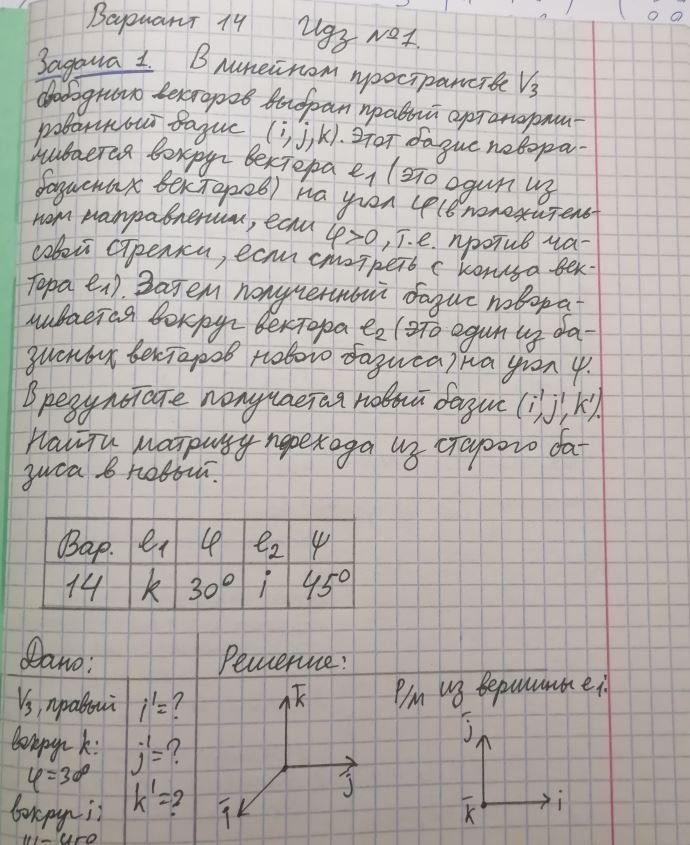 Вариант 14 Идз №1.
Задача 1. В линейном пространстве V3
свободных векторов выбран правый ортонорми-
рованный базис (i, j, k). Этот базис повора-
чивается вокруг вектора e1 (это один из
базисных векторов) на угол φ (в положитель-
ном направлении, если φ>0, т.е. против ча-
совой стрелки, если смотреть с конца век-
тора e1). Затем полученный базис повора-
чивается вокруг вектора e2 (это один из ба-
зисных векторов нового базиса) на угол ψ.
В результате получается новый базис (i', j', k').
Найти матрицу перехода из старого ба-
зиса в новый.
Вар. e1 φ e2 ψ
14 k 30° i 45°
Дано: Решение:
V3, правый i'=?
вокруг k: j'=?
φ=30° k'=?
вокруг i:
ψ=45°
k
j
i
Р/м из вершины e1:
j
k i